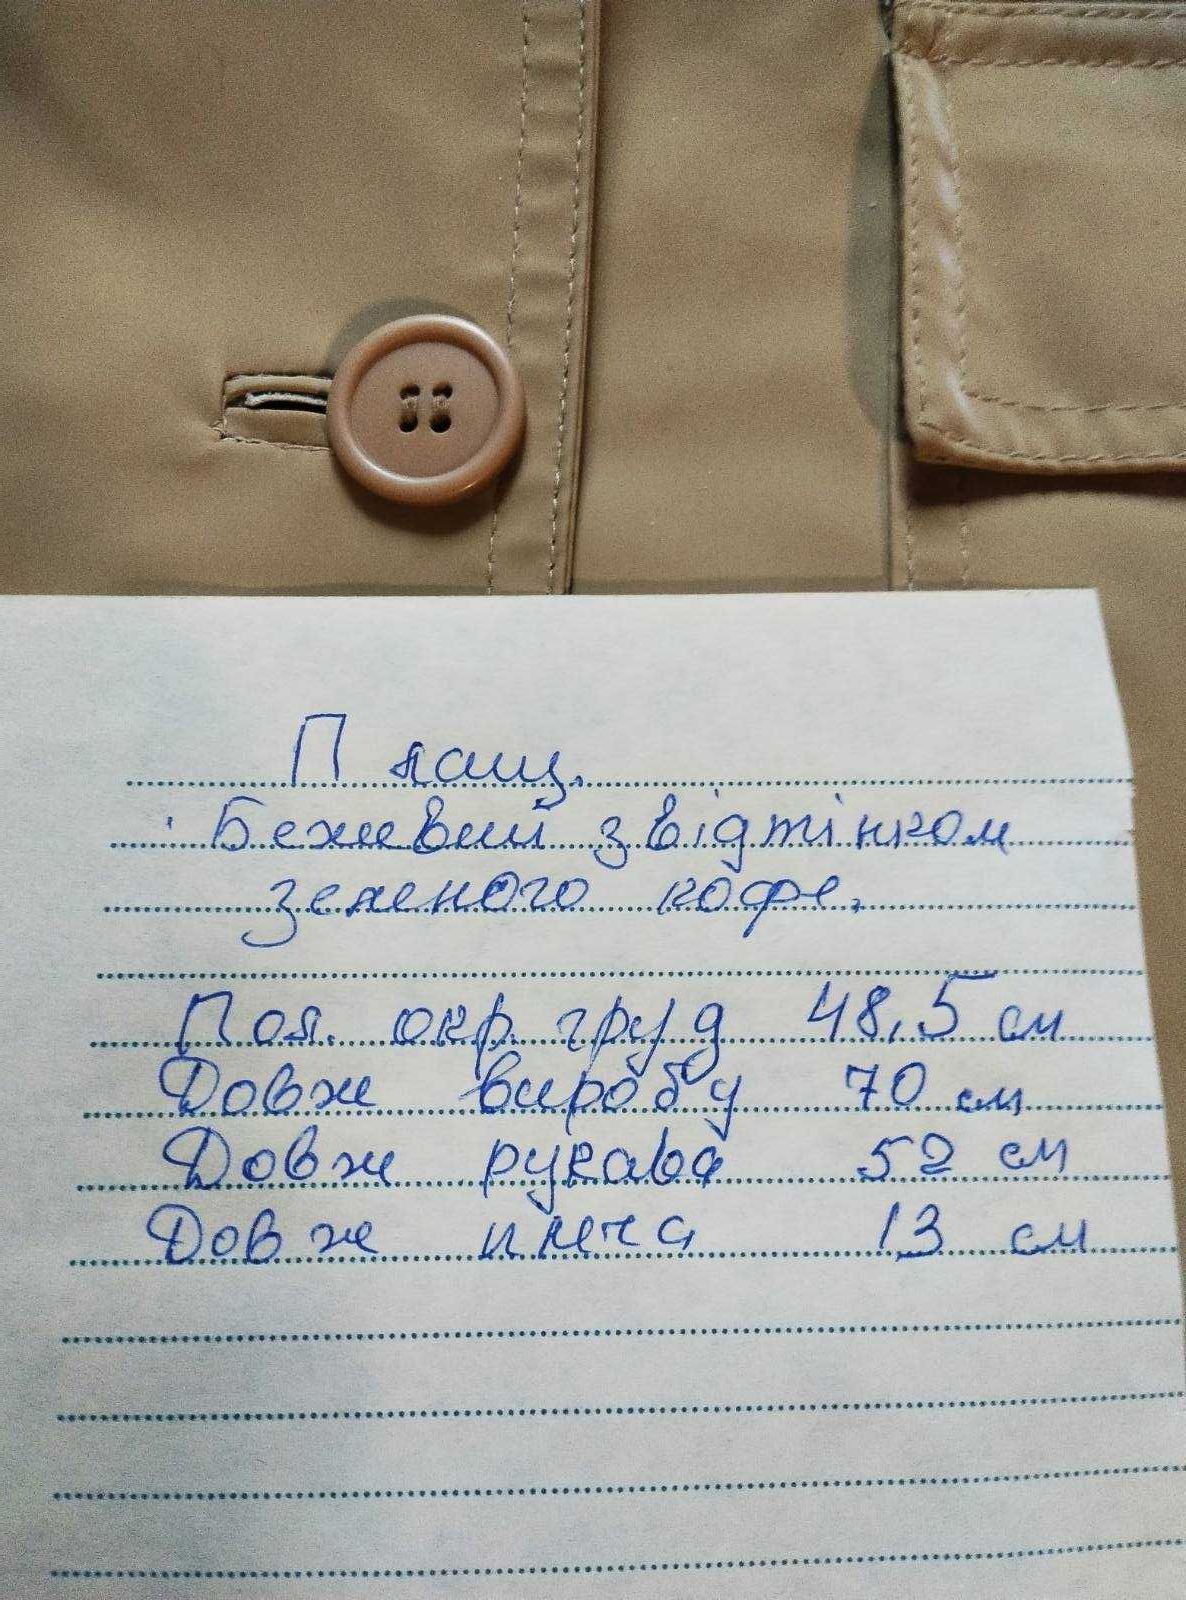 Плащ.
Бежевий з відтінком
зеленого кофе.
Пол. окр. груд 48,5 см
Довж виробу 70 см
Довж рукава 52 см
Довж плеча 13 см